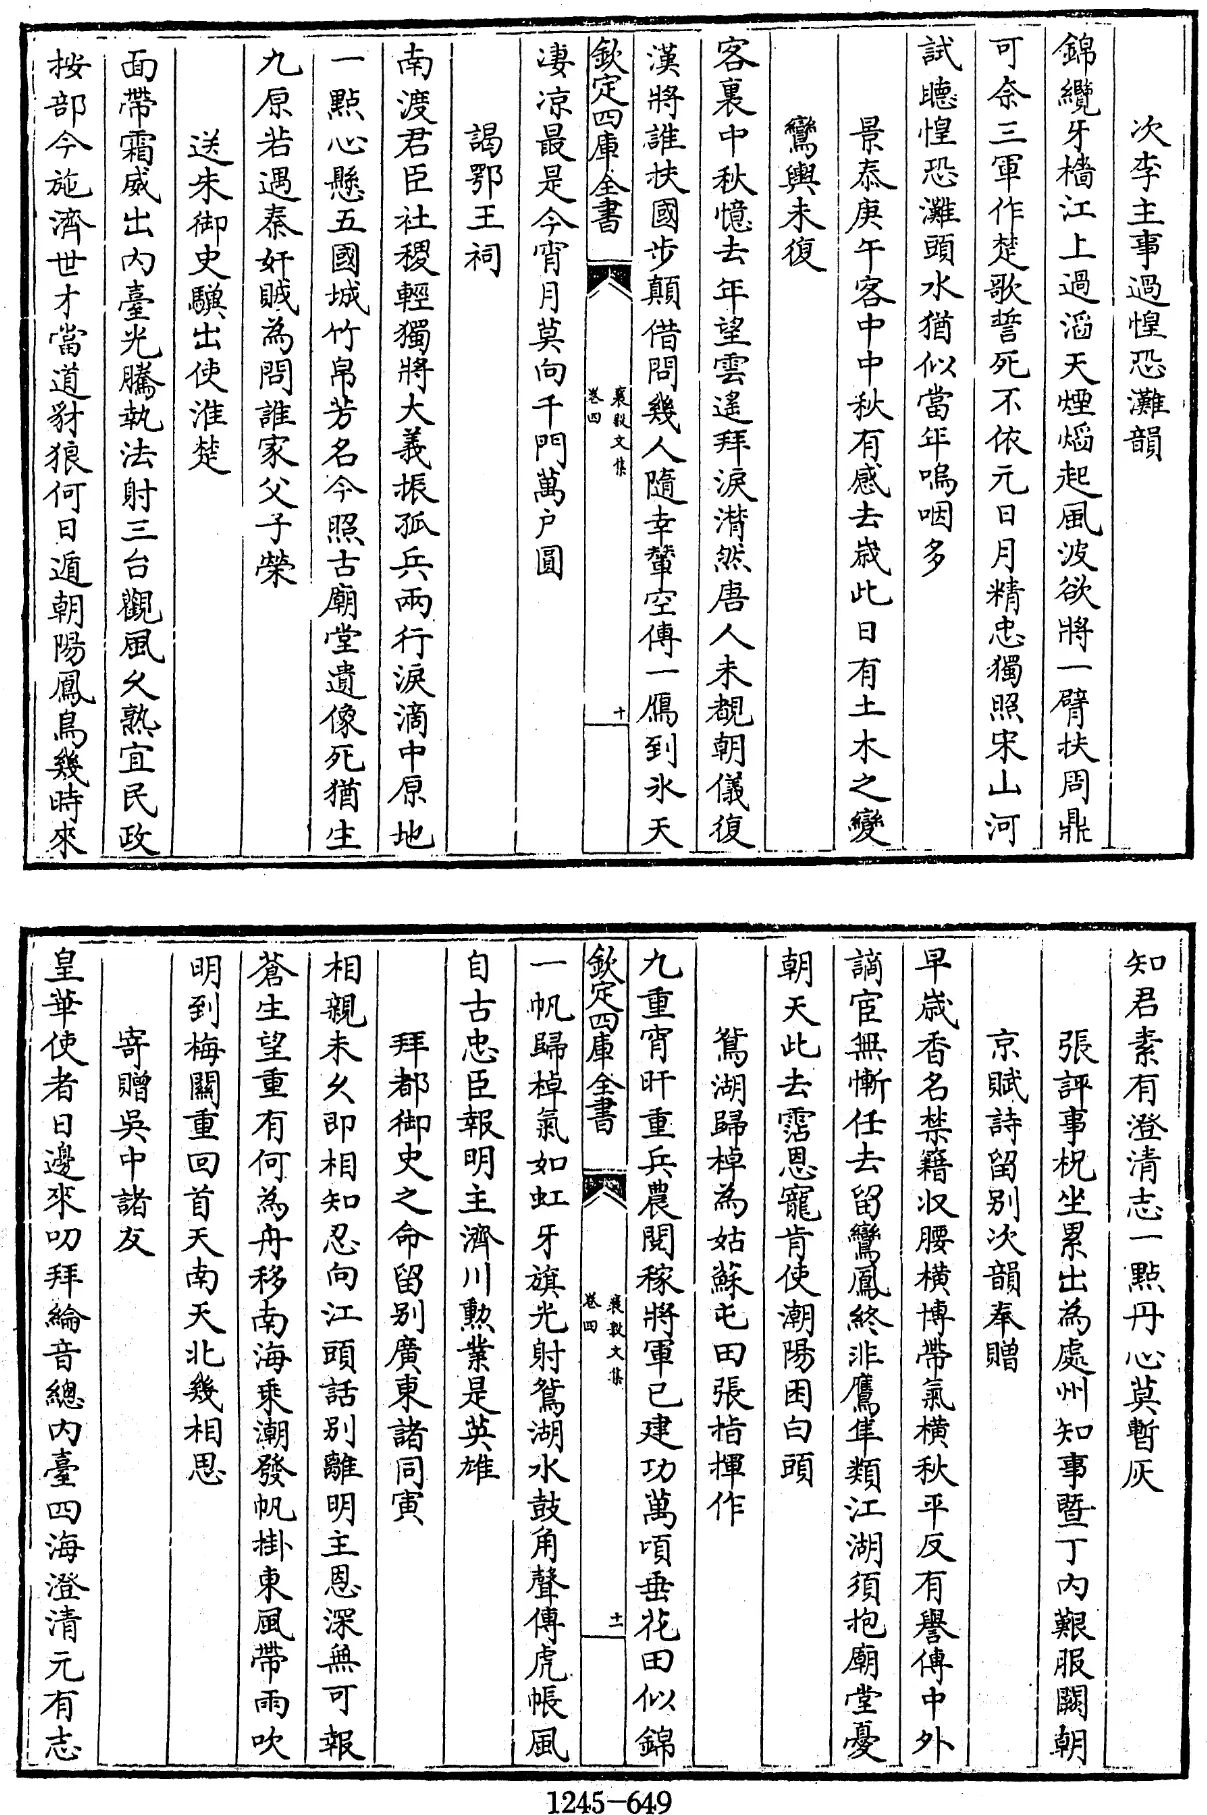 次李主事過惶恐灘韻
錦纜牙檣江上過滔天煙熖起風波欲將一臂扶周鼎
可奈三軍作楚歌誓死不依元日月精忠獨照宋山河
試聴惶恐灘頭水猶似當年嗚咽多
景泰庚午客中中秋有感去歳此日有土木之變
鸞輿未復
客裏中秋憶去年望雲遙拜淚潸然唐人未覩朝儀復
漢將誰扶國步顛借問幾人隨幸輦空傳一鴈到氷天
欽定四庫全書
襄毅文集
卷四
十
凄凉最是今宵月莫向千門萬户圓
謁鄂王祠
南渡君臣社稷輕獨將大義振孤兵兩行淚滴中原地
一點心懸五國城竹帛芳名今照古廟堂遺像死猶生
九原若遇秦奸賊為問誰家父子榮
送朱御史驥出使淮楚
面帶霜威出内臺光騰執法射三台觀風久熟宜民政
按部今施濟世才當道豺狼何日遁朝陽鳳鳥幾時來
知君素有澄清志一點丹心莫暫灰
張評事柷坐累出為處州知事暨丁内艱服闋朝
京賦詩留别次韻奉贈
早歳香名禁籍收腰横博帶氣横秋平反有譽傳中外
謫宦無慚任去留鸞鳳終非鷹隼類江湖須抱廟堂憂
朝天此去霑恩寵肯使潮陽困白頭
鴛湖歸棹為姑蘇屯田張指揮作
九重宵旰重兵農閱稼將軍已建功萬頃垂花田似錦
欽定四庫全書
襄毅文集
卷四
十一
一帆歸棹氣如虹牙旗光射鴛湖水鼓角聲傳虎帳風
自古忠臣報明主濟川勲業是英雄
拜都御史之命留别廣東諸同寅
相親未久即相知忍向江頭話别離明主恩深無可報
蒼生望重有何為舟移南海乘潮發帆掛東風帶雨吹
明到梅關重回首天南天北幾相思
寄贈吳中諸友
皇華使者日邊來叨拜綸音總内臺四海澄清元有志
1245-649